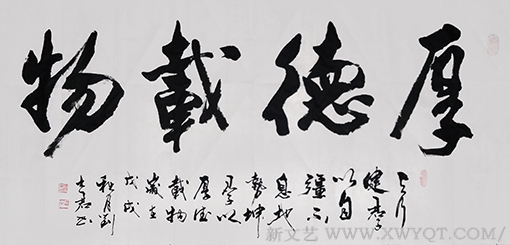 厚德載物
天行
健君子
以自
彊不
息地
勢坤
君子以
厚德
載物
歲在
戊戌
秋月劉
新文艺 / WWW.XWYQT.COM/